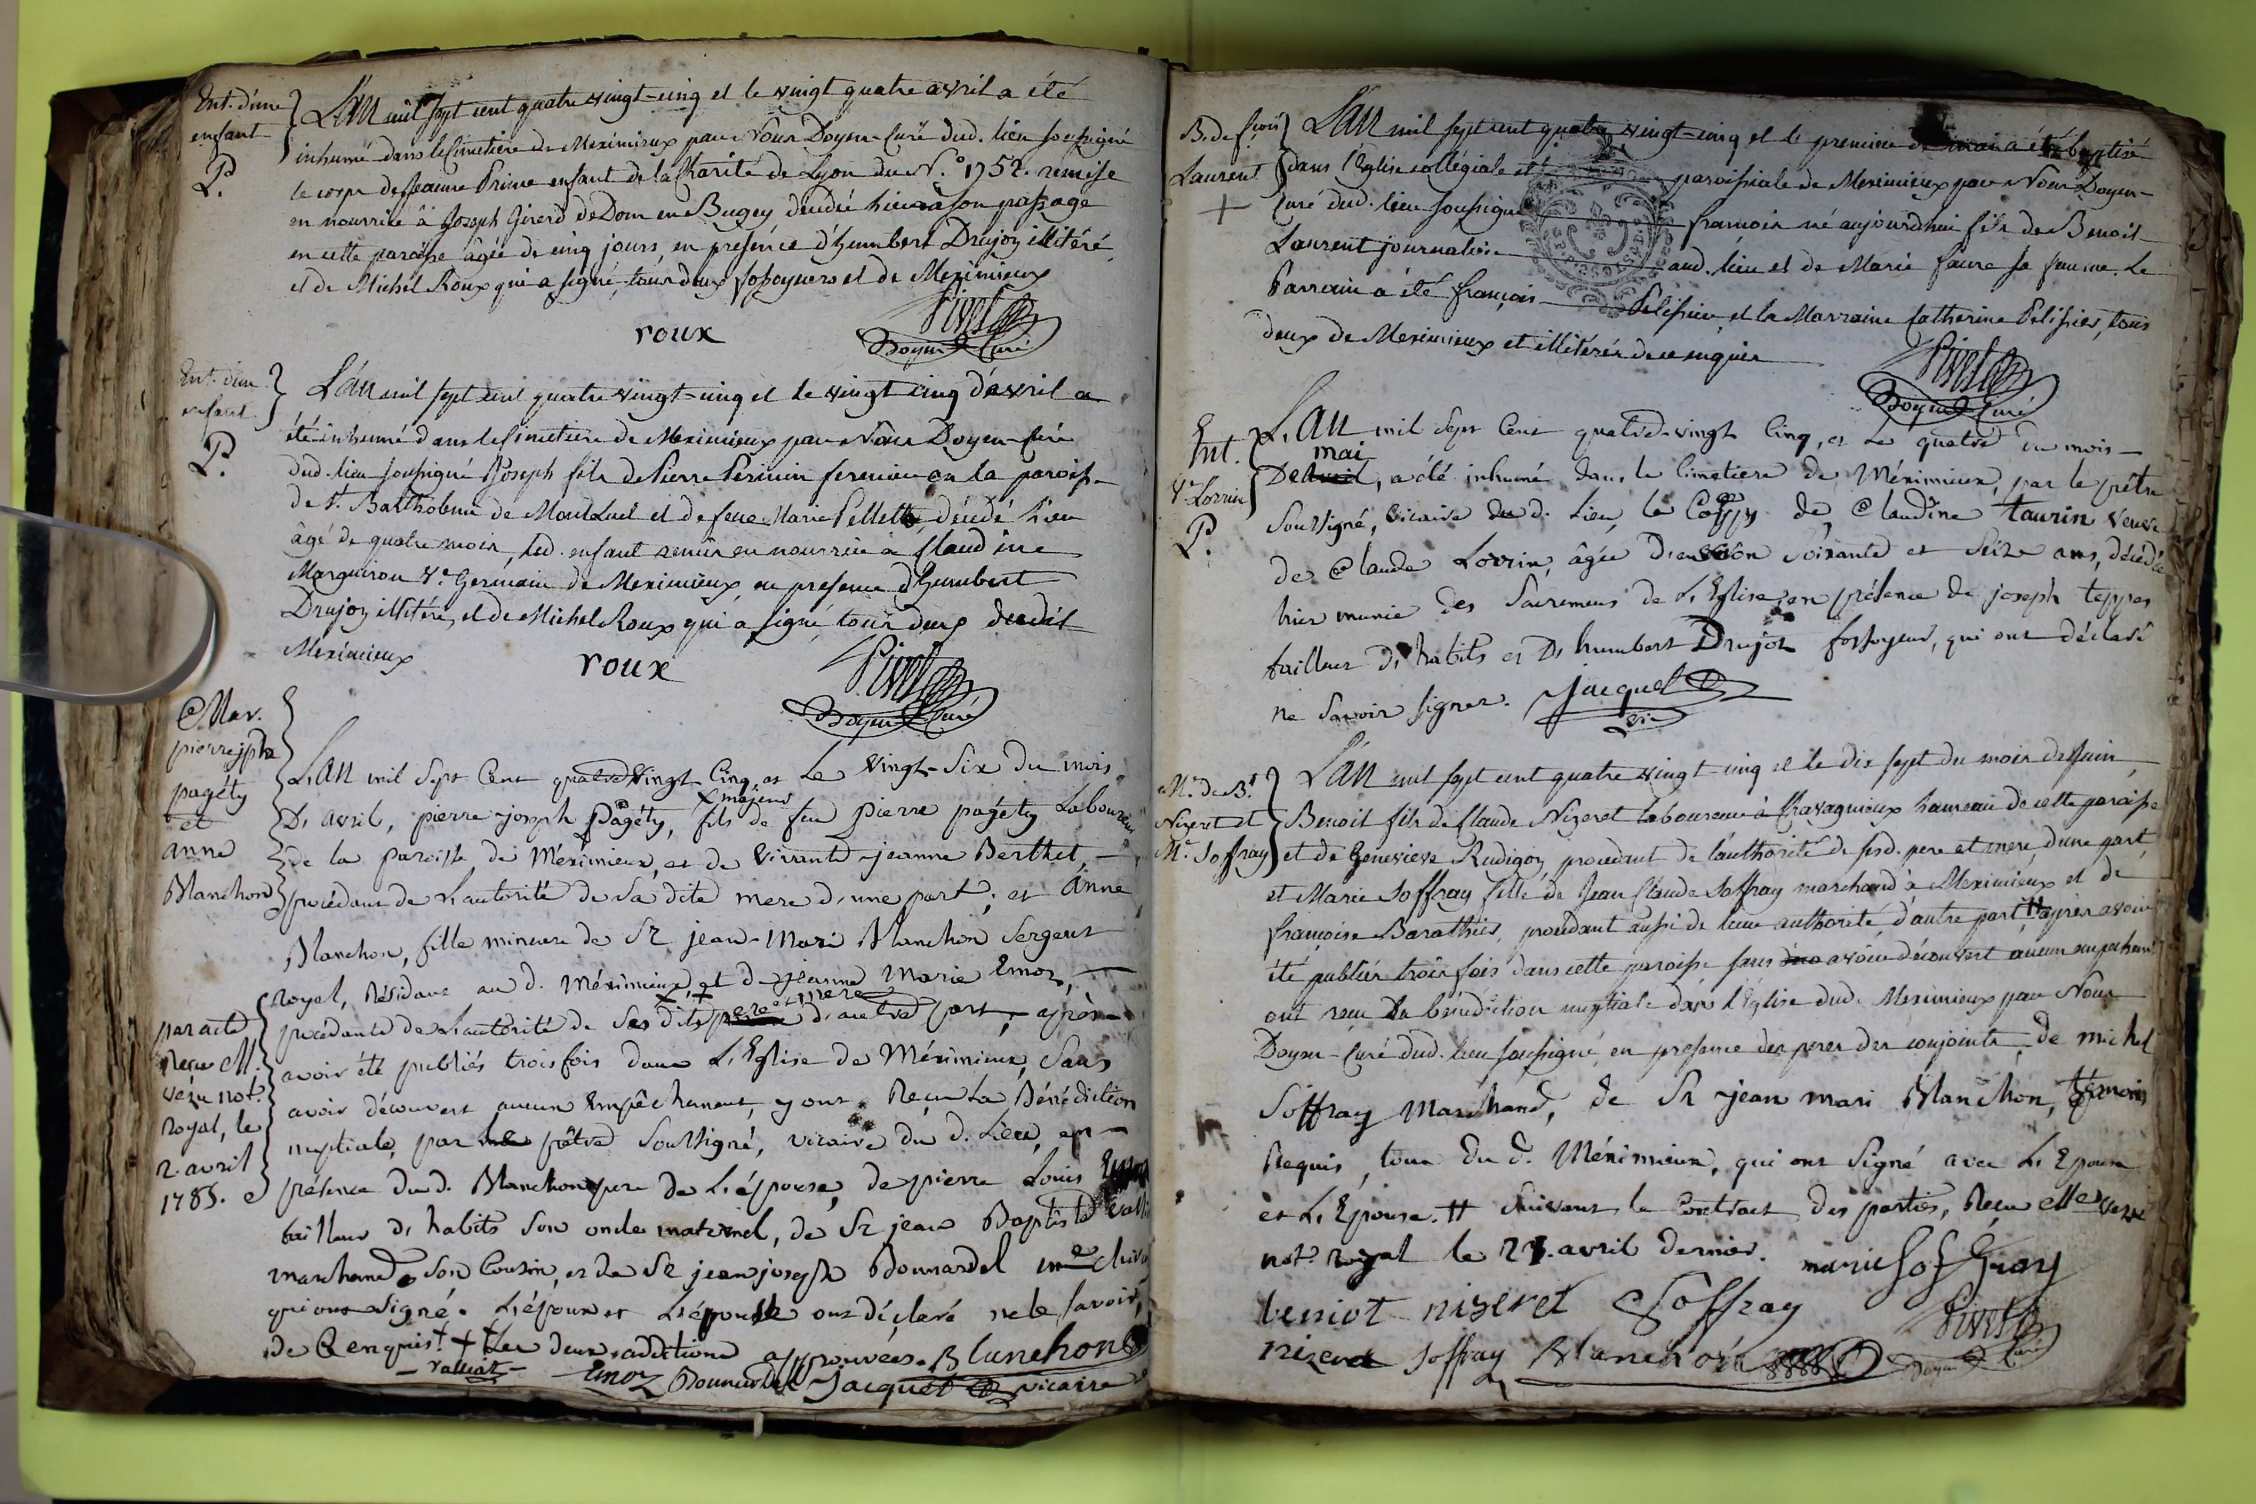 Ent. d'une
enfant
P.
L'an mil sept cent quatre vingt-cinq et le vingt quatre avril a été
inhumé dans le Cimetière de Meximieux par Nous Doyen-Curé dud. lieu soussigné
le corps de Jeanne Prime enfant de la Charité de Lyon du N.° 1752. remise
en nourrice à Joseph Girerd de Dom en Bugey décédé hier à son passage
en cette paroisse âgée de cinq jours, en présence d'humbert Drujon illitéré
et de Michel Roux qui a signé, tous deux fossoyeurs et de Meximieux
roux
Pivet
Doyen Curé
Ent. d'un
enfant
P.
L'an mil sept cent quatre vingt-cinq et le vingt cinq d'avril a
été inhumé dans le Cimetiere de Meximieux par Nous Doyen-Curé
dud. lieu soussigné Joseph fils de Pierre fermier en la paroisse
de St. Bartholemi de MontLuel et de feue Marie Pellett décédé hier
âgé de quatre mois, led. enfant remis en nourrice à Claudine
Marguiron Ve. Germain de Meximieux, en presence d'humbert
Drujon illitéré, et de Michel Roux qui a signé tous deux dudit
Meximieux
roux
Pivet
Doyen Curé
Mar.
pierre jph
pagéty
et
anne
Blanchon
L'An mil Sept Cent quatre Vingt Cinq et Le Vingt-Six Du mois
D'avril, pierre-joseph Pagéty, x majeur fils de feu pierre pagéty Laboureur
de la paroisse de Méximieux, et de vivante jeanne Berthet, —
procédant de L'autorité de Sa dite mere d'une part; et Anne
Blanchon, fille mineure de Sr jean-Marie Blanchon Sergent
royal, Résidant au d. Méximieux, et de jeanne Marie Emoz, —
procédante de L'autorité de Ses dits pere et mere d'autre part, après
avoir été publiés trois fois dans L'Eglise de Méximieux, Sans
avoir découvert aucun Empêchement, y ont Reçu La Bénédiction
nuptiale, par le prêtre Soussigné, vicaire du d. Lieu, en
présence du d. Blanchon pere de L'épouse, de pierre Louis Emoz
tailleur d'habits Son oncle maternel, de Sr jean Baptiste
marchand Son Cousin, et de Sr jean joseph Bonnardel
qui ont Signé. L'époux et L'épouse ont déclaré ne le savoir,
de ce enquis. ++ Les deux additions approuvées. Blanchon
valliat Emoz Bonnardel Jacquet vicaire
par acte
Reçu M.
vezu not.
royal, le
2 avril
1785.
B. de frçois
Laurent
+
L'an mil sept cent quatre vingt-cinq et le premier de mai a été baptisé
dans l'Eglise collégiale et paroissiale de Meximieux par Nous Doyen-
Curé dud. lieu soussigné francois né aujourd'hui fils de Benoit
Laurent journalier aud. lieu et de Marie faure sa femme. Le
Parrain a été françois Pelissier, et la Marraine Catherine Pelissier, tous
deux de Meximieux et illitérés de ce enquis
Pivet
Doyen Curé
Ent.
Ve. Lorrin
P.
L'An mil Sept Cent quatre-vingt Cinq, et Le quatre du mois
De mai, a été inhumé dans le Cimetiere de Méximieux, par le prêtre
Soussigné, vicaire du d. Lieu, le Corps de Claudine taurin veuve
de Claude Lorrin, âgée d'environ Soixante et Seize ans, décédée
hier munie des Sacremens de L'Eglise, en présence de joseph teppes
tailleur d'habits et D'humbert Drujon fossoyeur, qui ont déclaré
ne Savoir signer.
Jacquet
vic
Mr. de Bt.
Nizeret et
Me. Soffray
L'an mil sept cent quatre vingt-cinq et le dix sept du mois de Juin,
Benoit fils de Claude Nizeret laboureur à Chavagnieux hameau de cette paroisse
et de Genevieve Rudigoz, procedant de l'authorité de sesd. pere et mere, d'une part,
et Marie Soffray fille de Jean Claude Soffray marchand à Meximieux et de
françoise Barathier, procedant aussi de leur authorité, d'autre part, # après avoir
été publiés trois fois dans cette paroisse sans avoir découvert aucun empechement
ont recu la bénédiction nuptiale dans l'Eglise dud. Meximieux par Nous
Doyen-Curé dud. lieu soussigné, en presence des peres des conjoints, de michel
Soffray Marchand, de Sr jean mari Blanchon, témoins
Requis, tous du d. Méximieux, qui ont Signé avec L'Epoux
et L'Epouse. # Suivant le Contract des parties, Reçu Me vezu
not. royal le 21. avril dernier.
marie Soffray
beniot niseret Soffray
nizeret soffray Blanchon
Pivet
Doyen Curé